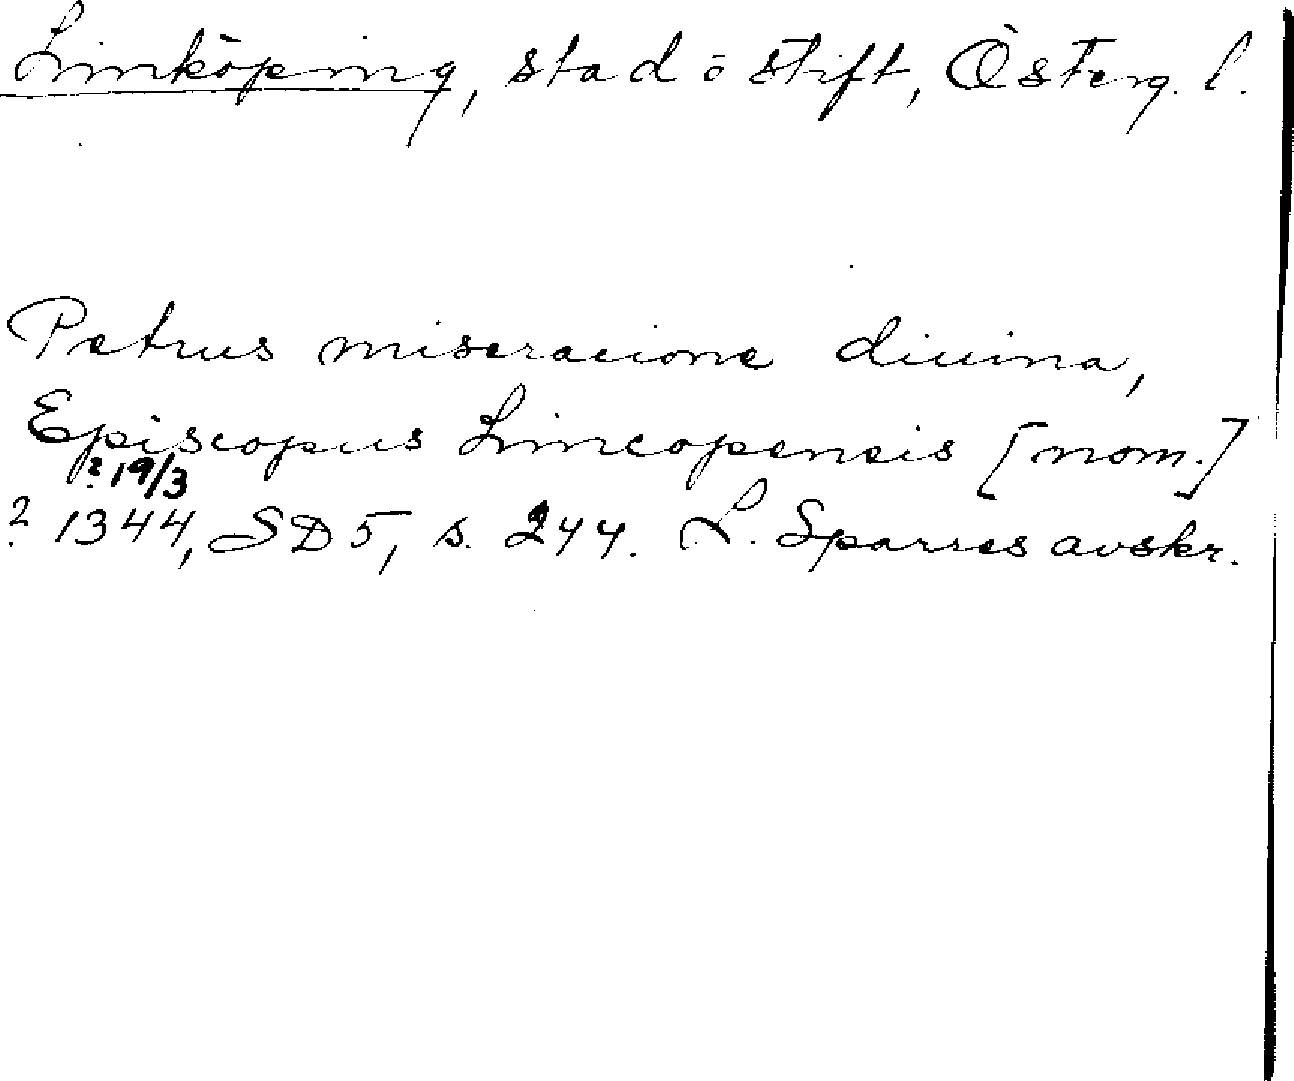 Linköping, stad o stift, Österg. l.
Petrus miseracione diuina,
Episcopus Lincopensis [nom.]
? 19/3
? 1344, SD 5, s. 244. L. Sparres avskr.